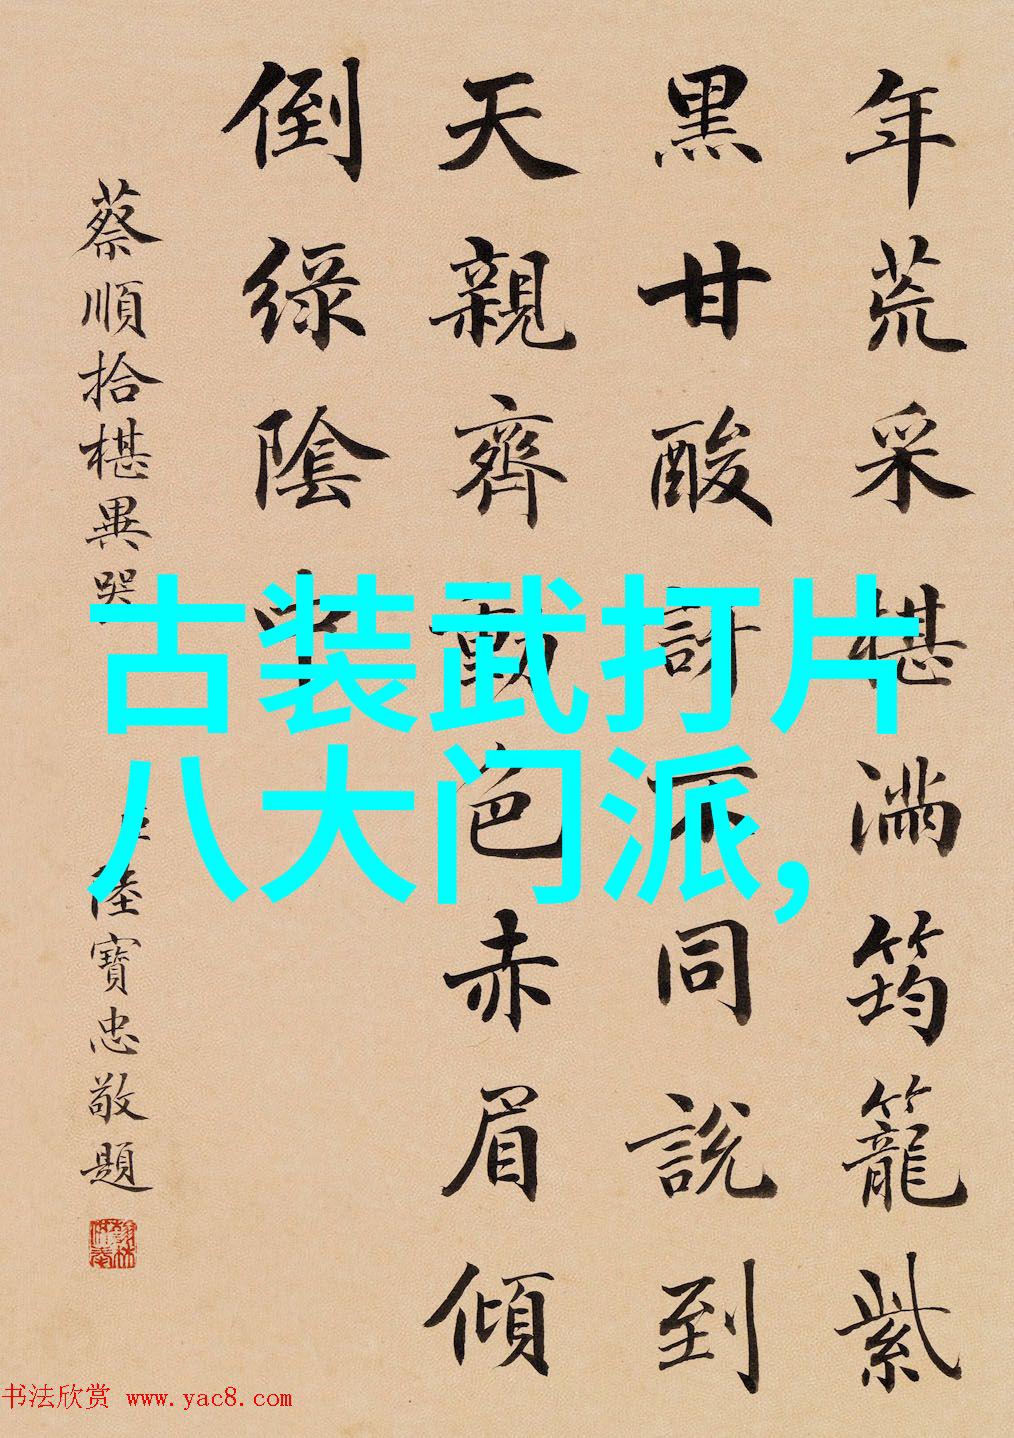 年荒采椹滿筠籠紫
黑甘酸訝不同說到
天親齊動色赤眉傾
倒綠陰中
蔡順拾椹異器
臣陸寶忠敬題
古装武打片
八大门派,
书法欣赏 www.yac8.com